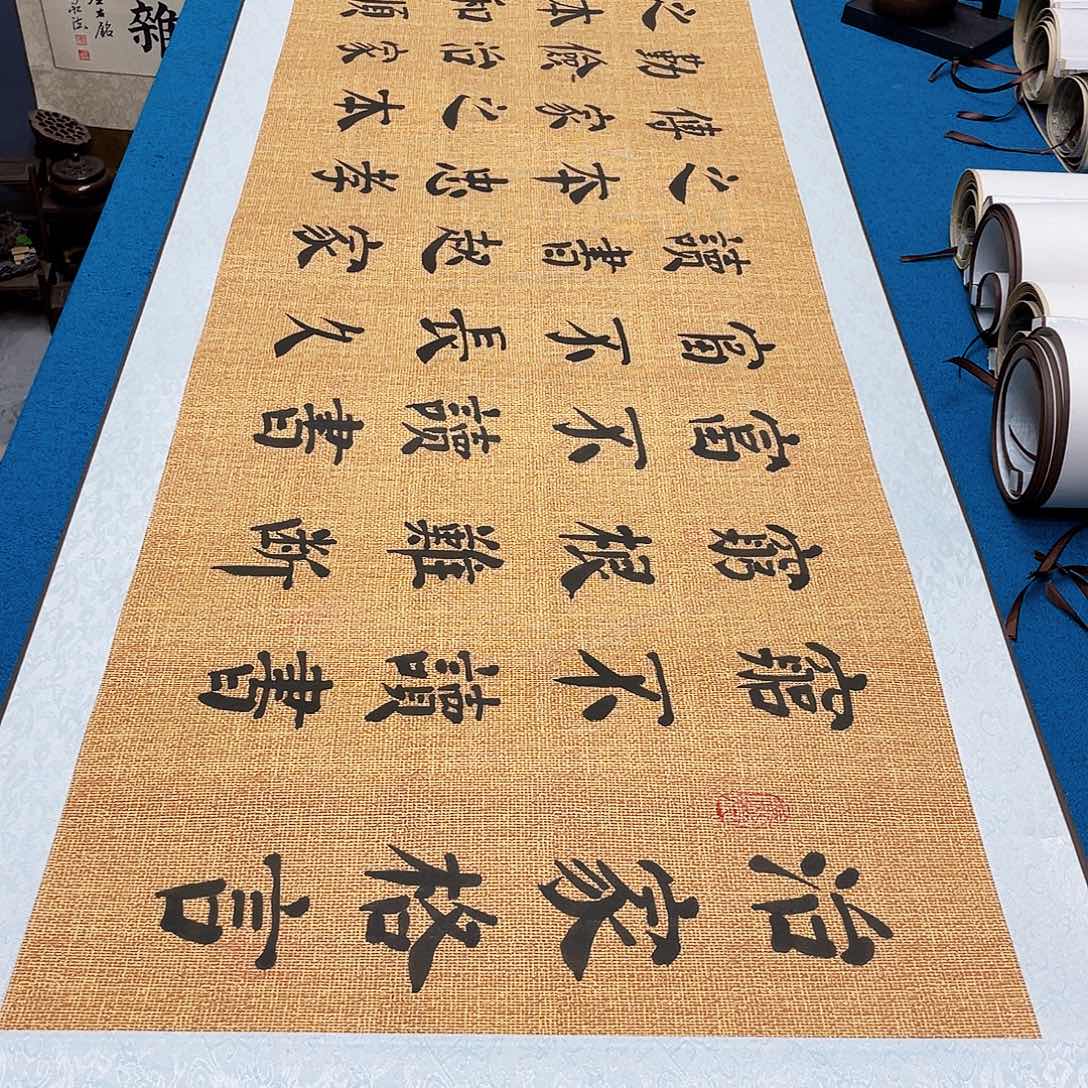 治家格言
窮不讀書
窮根難斷
富不讀書
富不長久
讀書起家
之本忠孝
傳家之本
勤儉治家
之本和順
雜